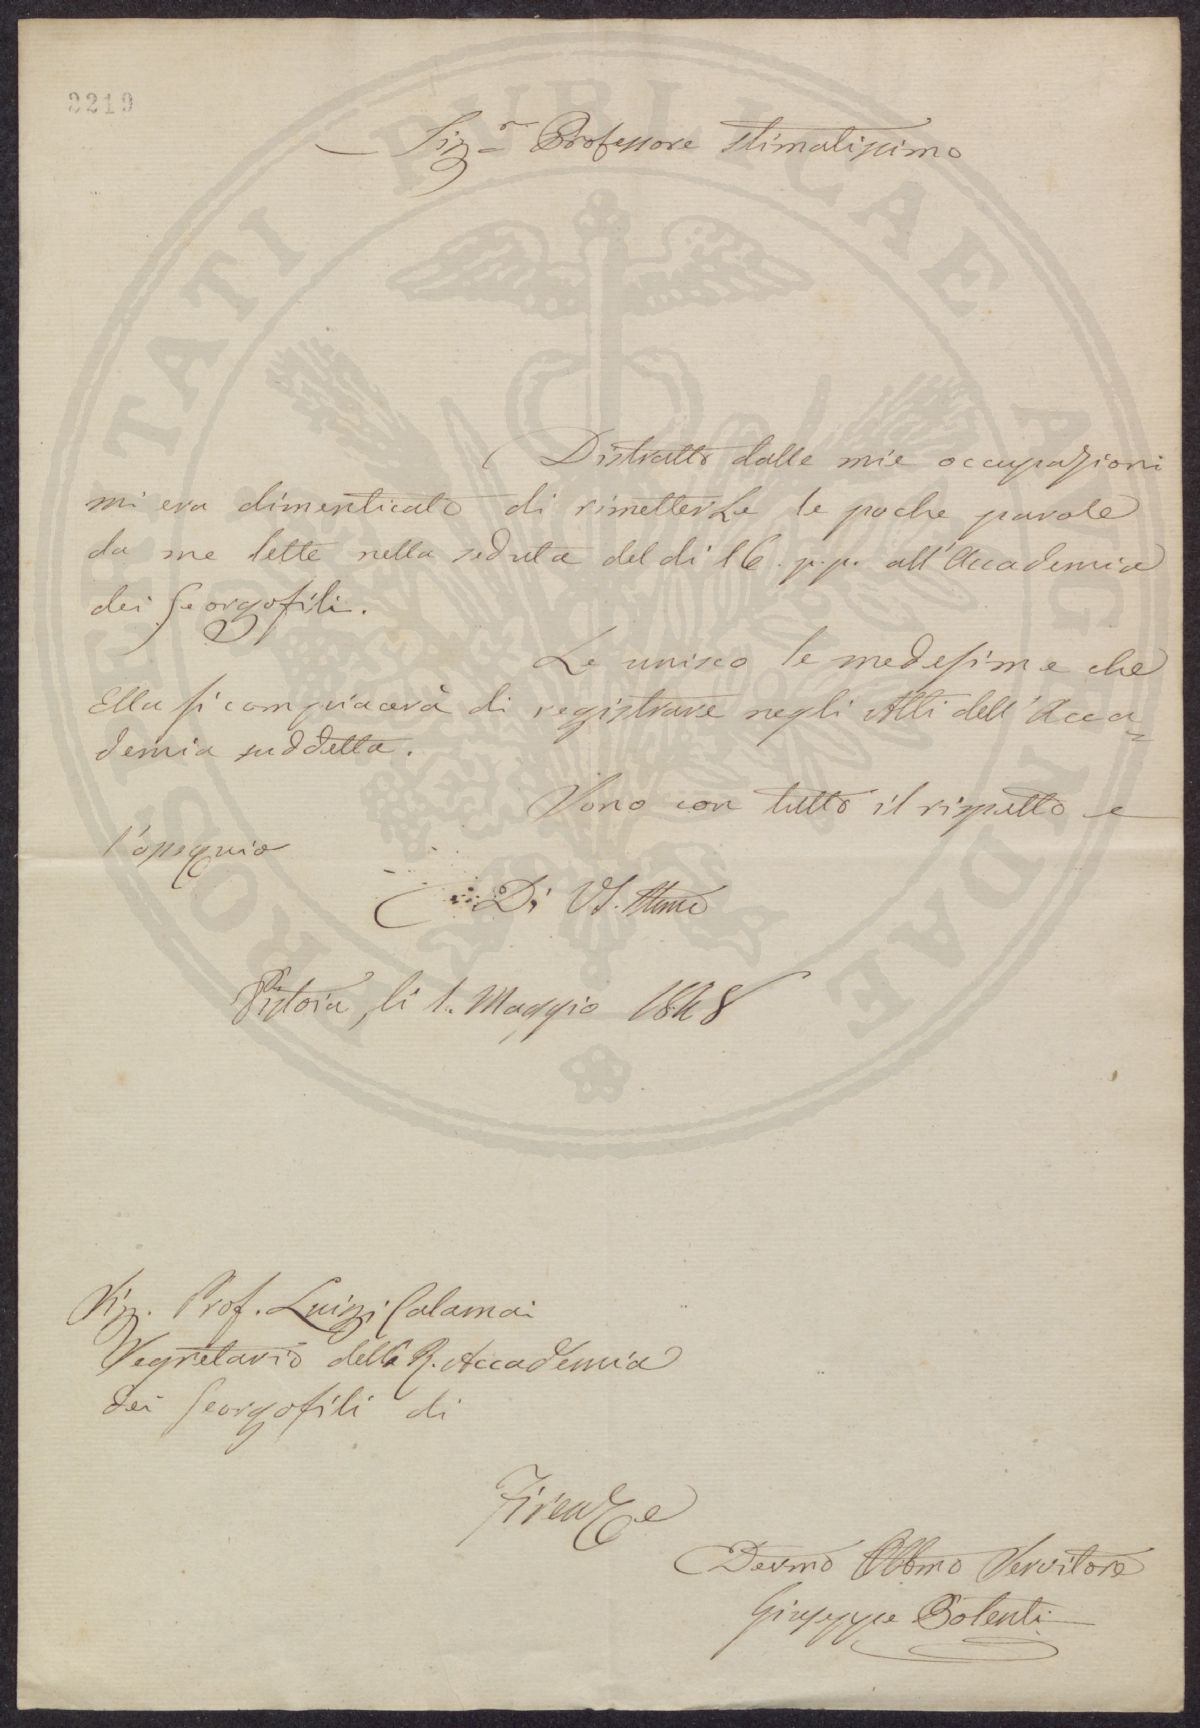 2219
Sig.r Professore Stimatissimo
Distratto dalle mie occupazioni
mi era dimenticato di rimetterLe le poche parole
da me lette nella seduta del dì 16. p.p. all'Accademia
dei Georgofili.
Le unisco le medesime che
Ella si compiacerà di registrare negli Atti dell'Acca=
demia suddetta.
Sono con tutto il rispetto e
l'ossequio
Di VS.
Pistoia, li 1. Maggio 1848
Sig. Prof. Luigi Calamai
Segretario della R. Accademia
dei Georgofili di
Firenze
Devmo Obbmo Servitore
Giuseppe Polenti
PROSPERITATI PUBLICAE AUGENDAE